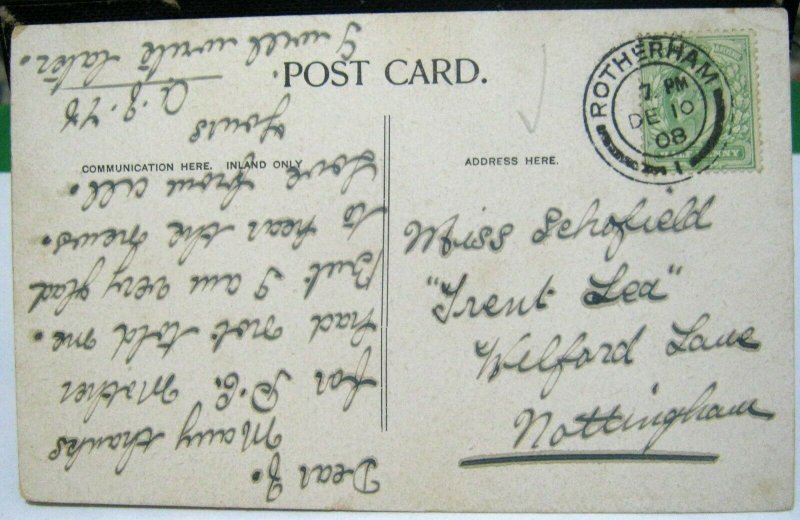 POST CARD.
COMMUNICATION HERE. INLAND ONLY
ADDRESS HERE.
ROTHERHAM
7 PM
DE 10
08
1
Miss Schofield
"Trent Lea"
Wilford Lane
Nottingham
Dear J.
Many thanks
for P.C. Mother
had not told me.
But I am very glad
to hear the news.
Love from all.
Yours
I will write later.